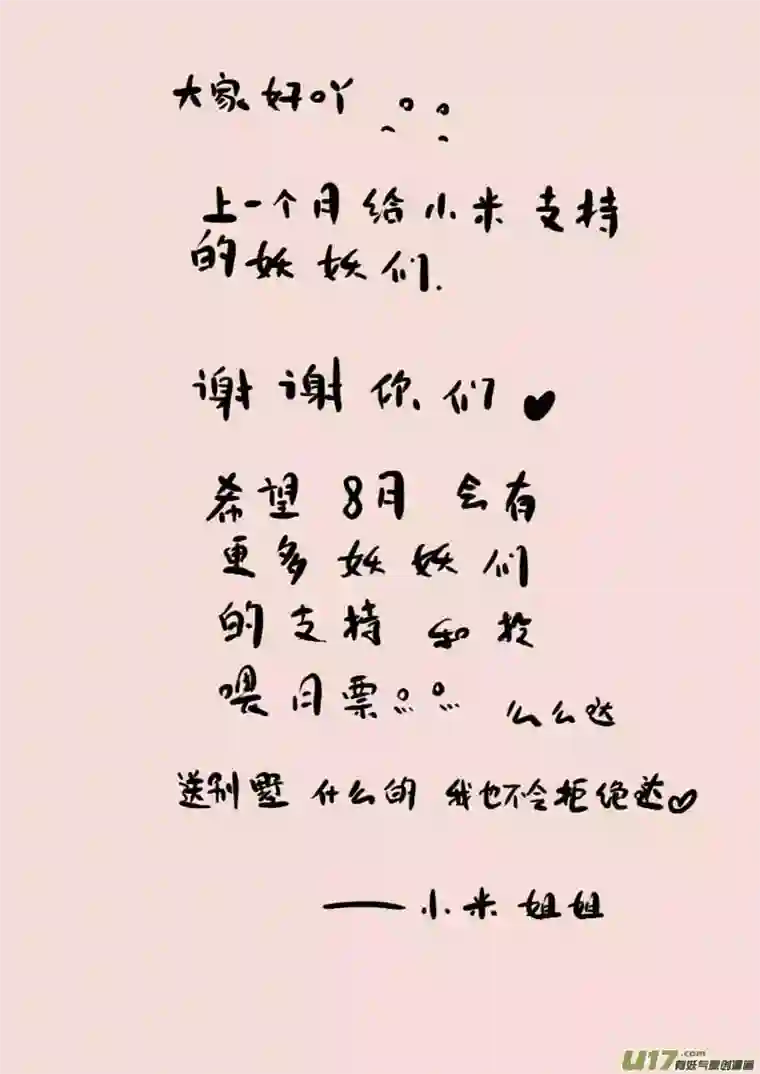 大家好吖
上一个月给小米支持
的妖妖们.
谢谢你们♥
希望8月会有
更多妖妖们
的支持和投
喂月票 么么哒
送别墅什么的 我也不会拒绝达♡
——小米姐姐
U17.com
有妖气原创漫画